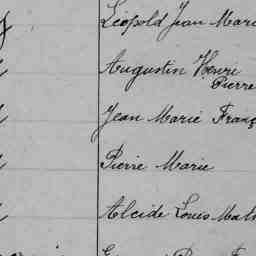 Léopold Jean Mari
Augustin Henri
Pierre
Jean Marie Franç
Pierre Marie
Alcide Louis